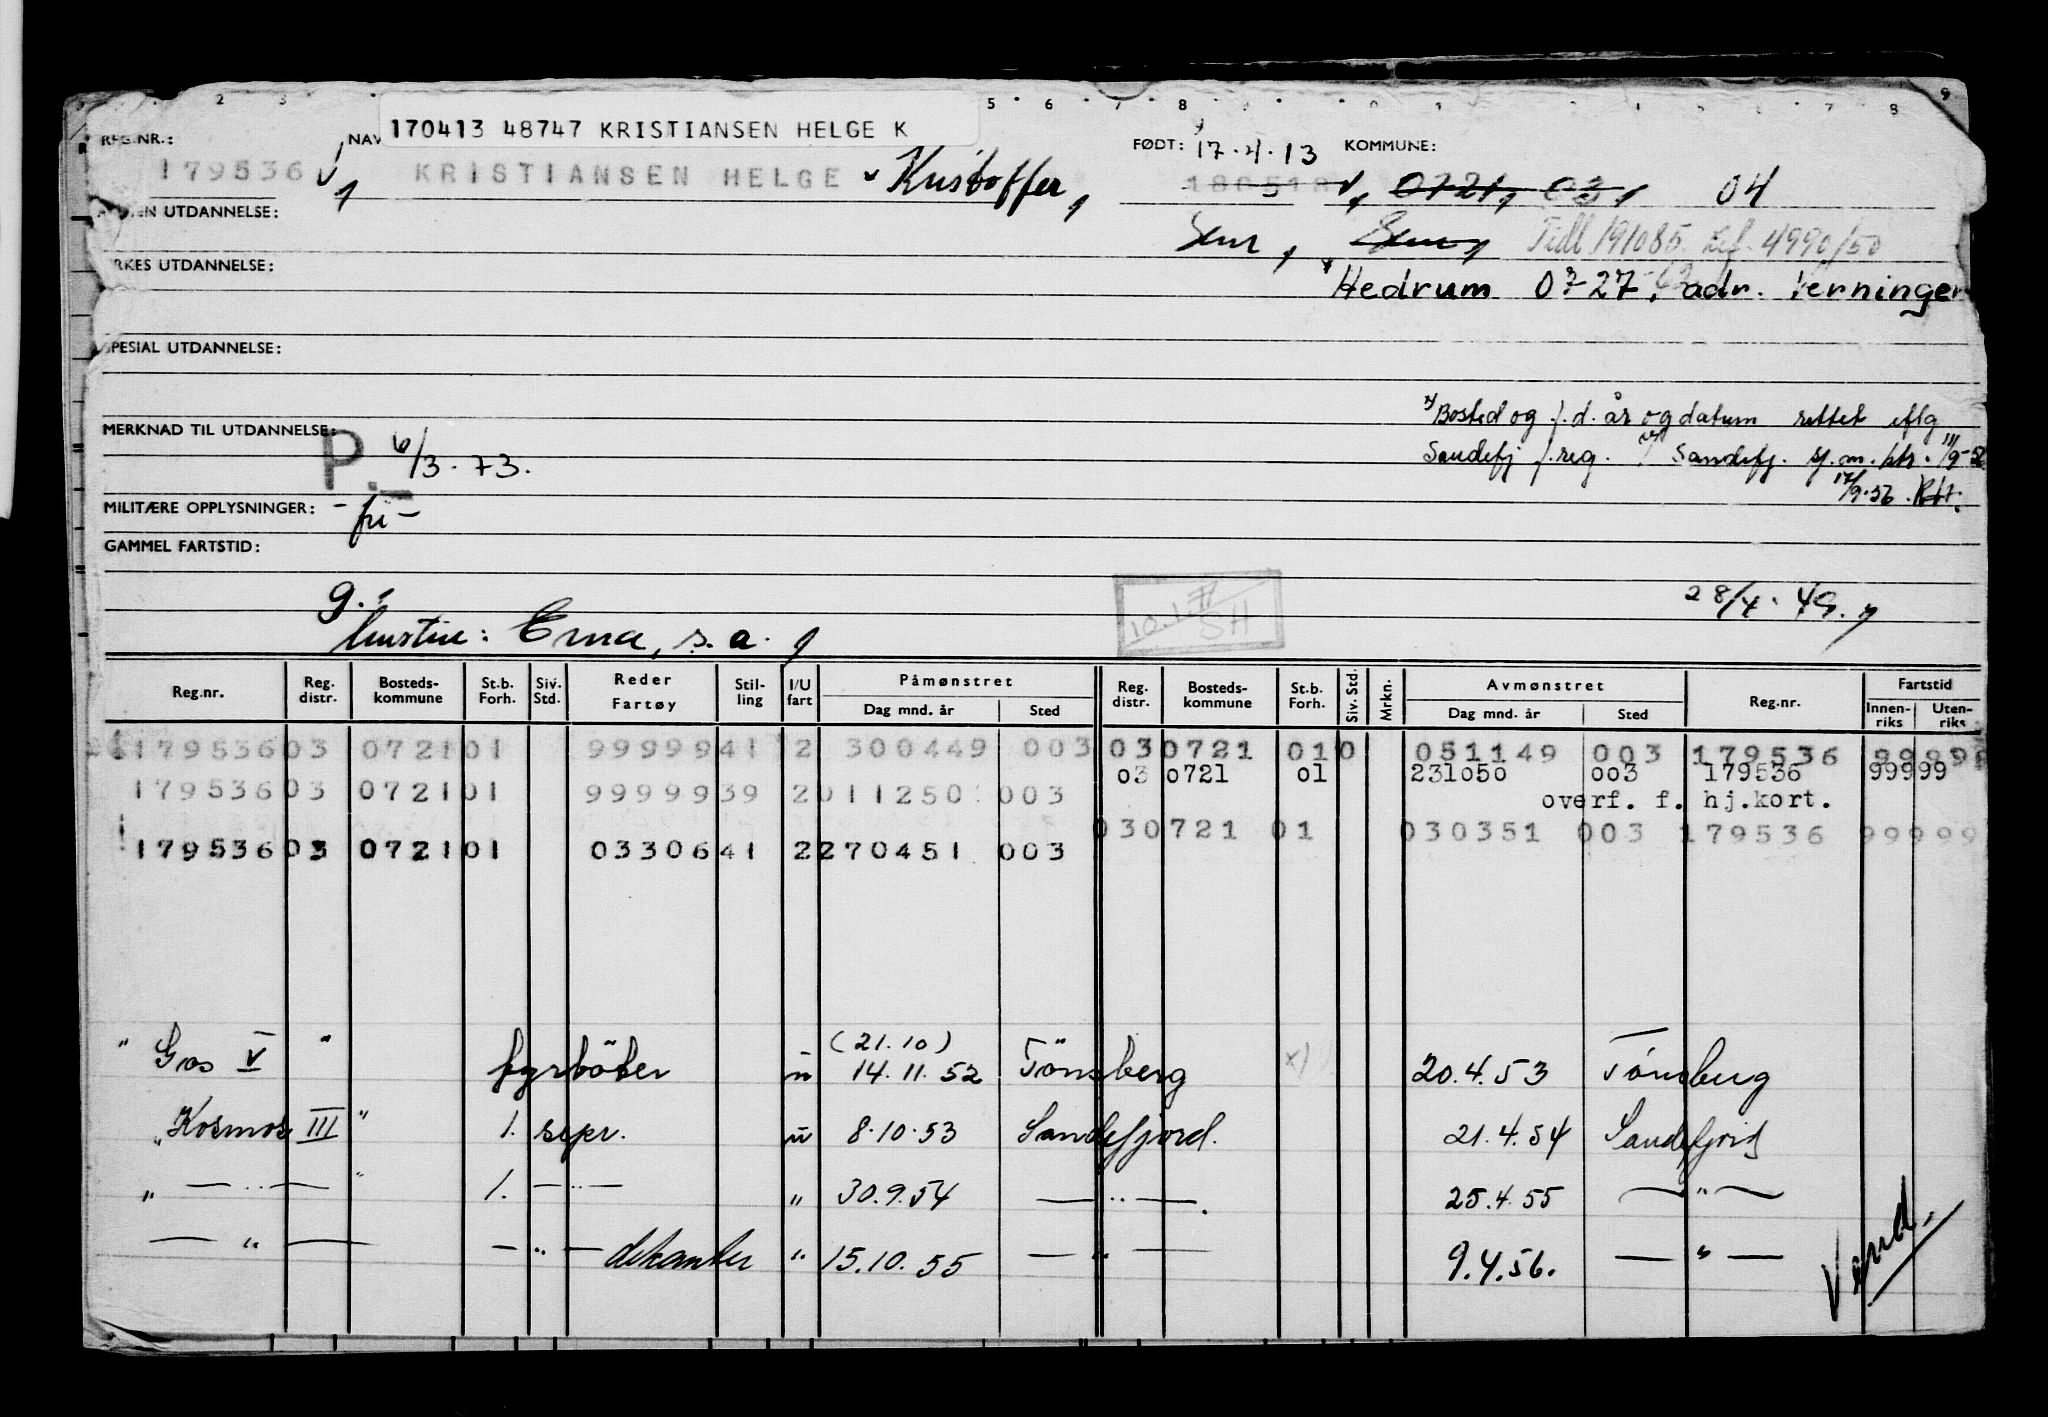 170413 48747 KRISTIANSEN HELGE K
REG.NR.: NAV FØDT: 17.4.13 KOMMUNE:
179536 KRISTIANSEN HELGE Kristoffer, 180518 0721, 03, 04
UTDANNELSE: Sem, Sem, Tidl 191085 4990/50
YRKES UTDANNELSE: Hedrum 0727, adr. Verningen
SPESIAL UTDANNELSE:
x) Bosted og f.d. år og datum rettet iflg
MERKNAD TIL UTDANNELSE: P. 6/3.73. Sandefj f.reg. Sandefj. sj.m.ktr. 11/9-52
17/9.56.
MILITÆRE OPPLYSNINGER: - fri -
GAMMEL FARTSTID:
g.: 28/4.49.
hustru: Erna, s.a.
SH
Reg.nr. Reg. distr. Bosteds-kommune St.b. Forh. Siv. Std. Reder Fartøy Stil-ling I/U fart Påmønstret Dag mnd. år Sted Reg. distr. Bosteds-kommune St.b. Forh. Siv. Std. Mrkn. Avmønstret Dag mnd. år Sted Reg.nr. Fartstid Innen-riks Uten-riks
179536 03 0721 01 99999 41 2 300449 003 03 0721 01 0 051149 003 179536 99999
03 0721 01 231050 003 179536 99999
179536 03 0721 01 99999 39 2 011250 003 overf. f. hj.kort.
03 0721 01 030351 003 179536 99999
179536 03 0721 01 03306 41 2 270451 003
(21.10)
" Gos V " fyrbøter u 14.11.52 Tönsberg x) 20.4.53 Tönsberg
" Kosmos III " 1. sepr. u 8.10.53 Sandefjord. 21.4.54 Sandefjord
" — " — " 1. — " — " 30.9.54 — " —. 25.4.55 — " —
— " — — " — dekanter " 15.10.55 — " — 9.4.56. — " —
Vend.